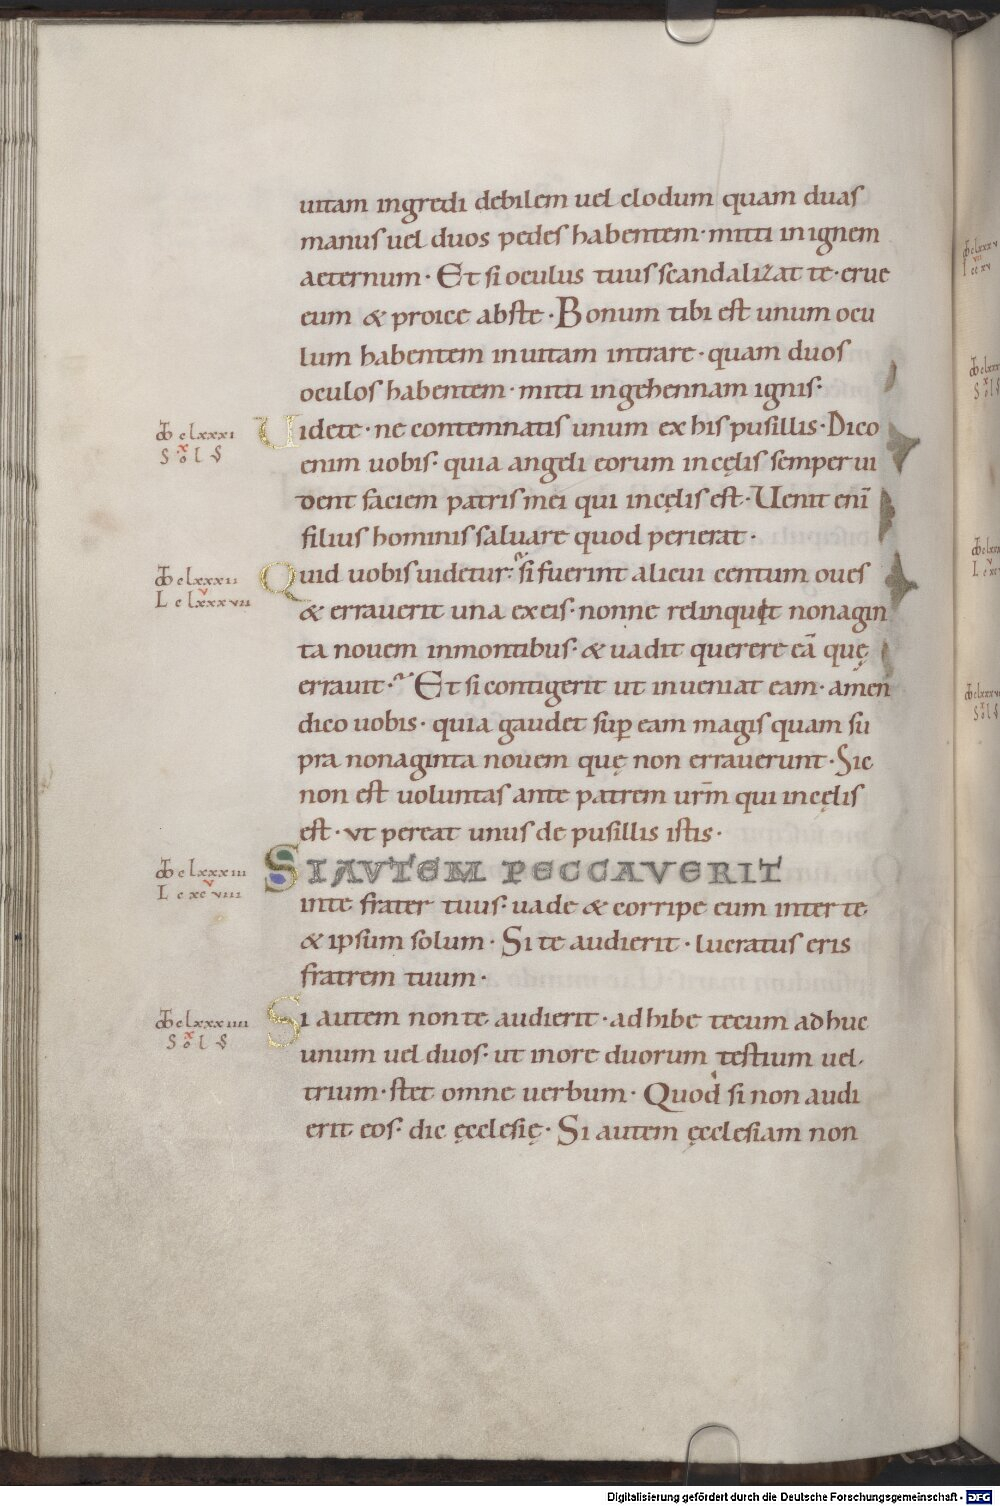 uitam ingredi debilem uel clodum quam duas
manus uel duos pedes habentem· mitti inignem
aeternum· Et si oculus tuus scandalizat te· erue
eum & proice abste· Bonum tibi est unum ocu
lum habentem inuitam intrare· quam duos
oculos habentem· mitti ingehennam ignis·
ꝏ clxxxi
S x ol S
Uidete· ne contemnatis unum ex his pusillis· Dico
enim uobis· quia angeli eorum incęlis semper ui
dent faciem patris mei qui incęlis est· Uenit eni̅
filius hominis saluare quod perierat·
clxxxii
L v clxxxvii
Quid uobis uidetur· si fuerint alicui centum oues
& errauerit una exeis· nonne relinquit nonagin
ta nouem inmontibus· & uadit querere ea̅ quę
errauit· Et si contigerit ut inueniat eam· amen
dico uobis· quia gaudet sup̲ eam magis quam su
pra nonaginta nouem quę non errauerunt· Sic
non est uoluntas ante patrem urm̅ qui incęlis
est· ut pereat unus de pusillis istis·
clxxxiii
L v xcviiii
SI AVTEM PECCAVERIT
inte frater tuus· uade & corripe eum inter te
& ipsum solum· Si te audierit· lucratus eris
fratrem tuum·
clxxxiiii
S x ol S
Si autem non te audierit· adhibe tecum adhuc
unum uel duos· ut inore duorum testium uel
trium· stet omne uerbum· Quod si non audi
erit eos· dic ęcclesię· Si autem ęcclesiam non
Digitalisierung gefördert durch die Deutsche Forschungsgemeinschaft - DFG